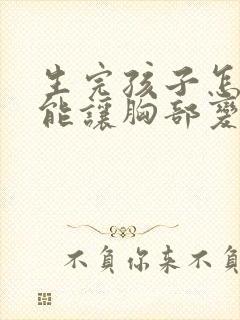 生完孩子怎
能讓胸部變
不負你來不負